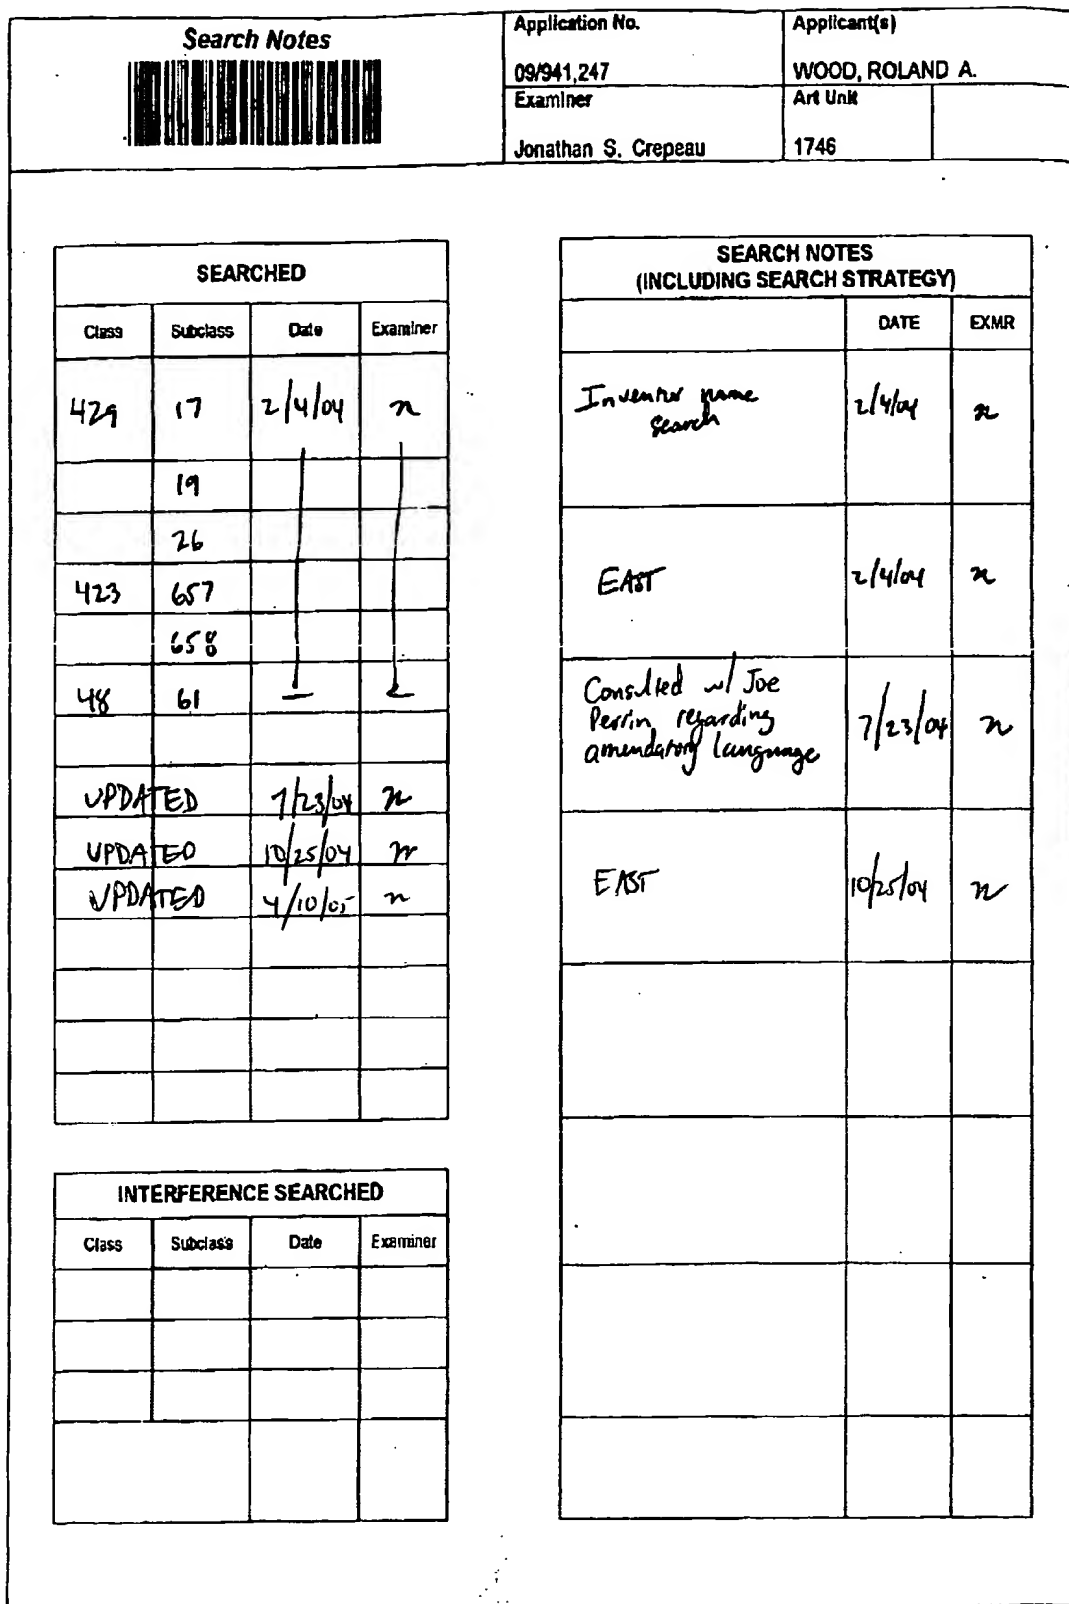 Search Notes
Application No.
09/941,247
Applicant(s)
WOOD, ROLAND A.
Examiner
Jonathan S. Crepeau
Art Unit
1746
SEARCHED
Class Subclass Date Examiner
429 17 2/4/04
19
26
423 657
658
48 61
UPDATED 7/23/04
UPDATED 10/25/04
UPDATED 4/10/05
INTERFERENCE SEARCHED
Class Subclass Date Examiner
SEARCH NOTES
(INCLUDING SEARCH STRATEGY)
DATE EXMR
Inventor name
search 2/4/04
EAST 2/4/04
Consulted w/ Joe
Perrin regarding
amendatory language 7/23/04
EAST 10/25/04